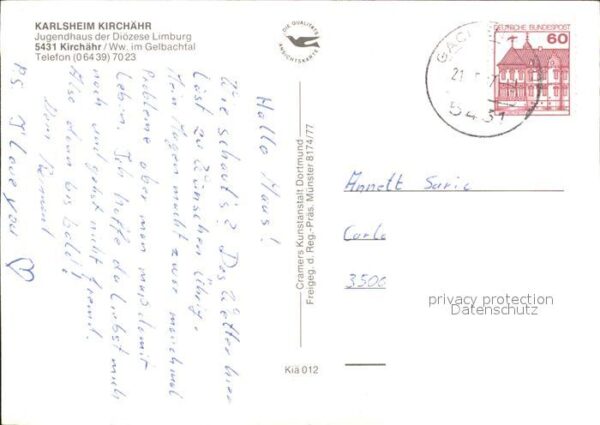 KARLSHEIM KIRCHÄHR
Jugendhaus der Diözese Limburg
5431 Kirchähr / Ww. im Gelbachtal
Telefon (06439) 7023
DIE QUALITÄTS
ANSICHTSKARTE
DEUTSCHE BUNDESPOST
60
5431
Hallo Maus!
Wie schaut's? Das Wetter hier
läßt zu Wünschen übrig.
Mein Magen macht zwar manchmal
Probleme aber man muß damit
Leben. Ich hoffe du liebst mich
noch und gehst nicht fremd.
Also dann bis bald!
Dein
PS I love you ♡
Cramers Kunstanstalt Dortmund
Freigeg. d. Reg.-Präs. Münster 8174/77
Kiä 012
Annett
Carlo
3500
privacy protection
Datenschutz